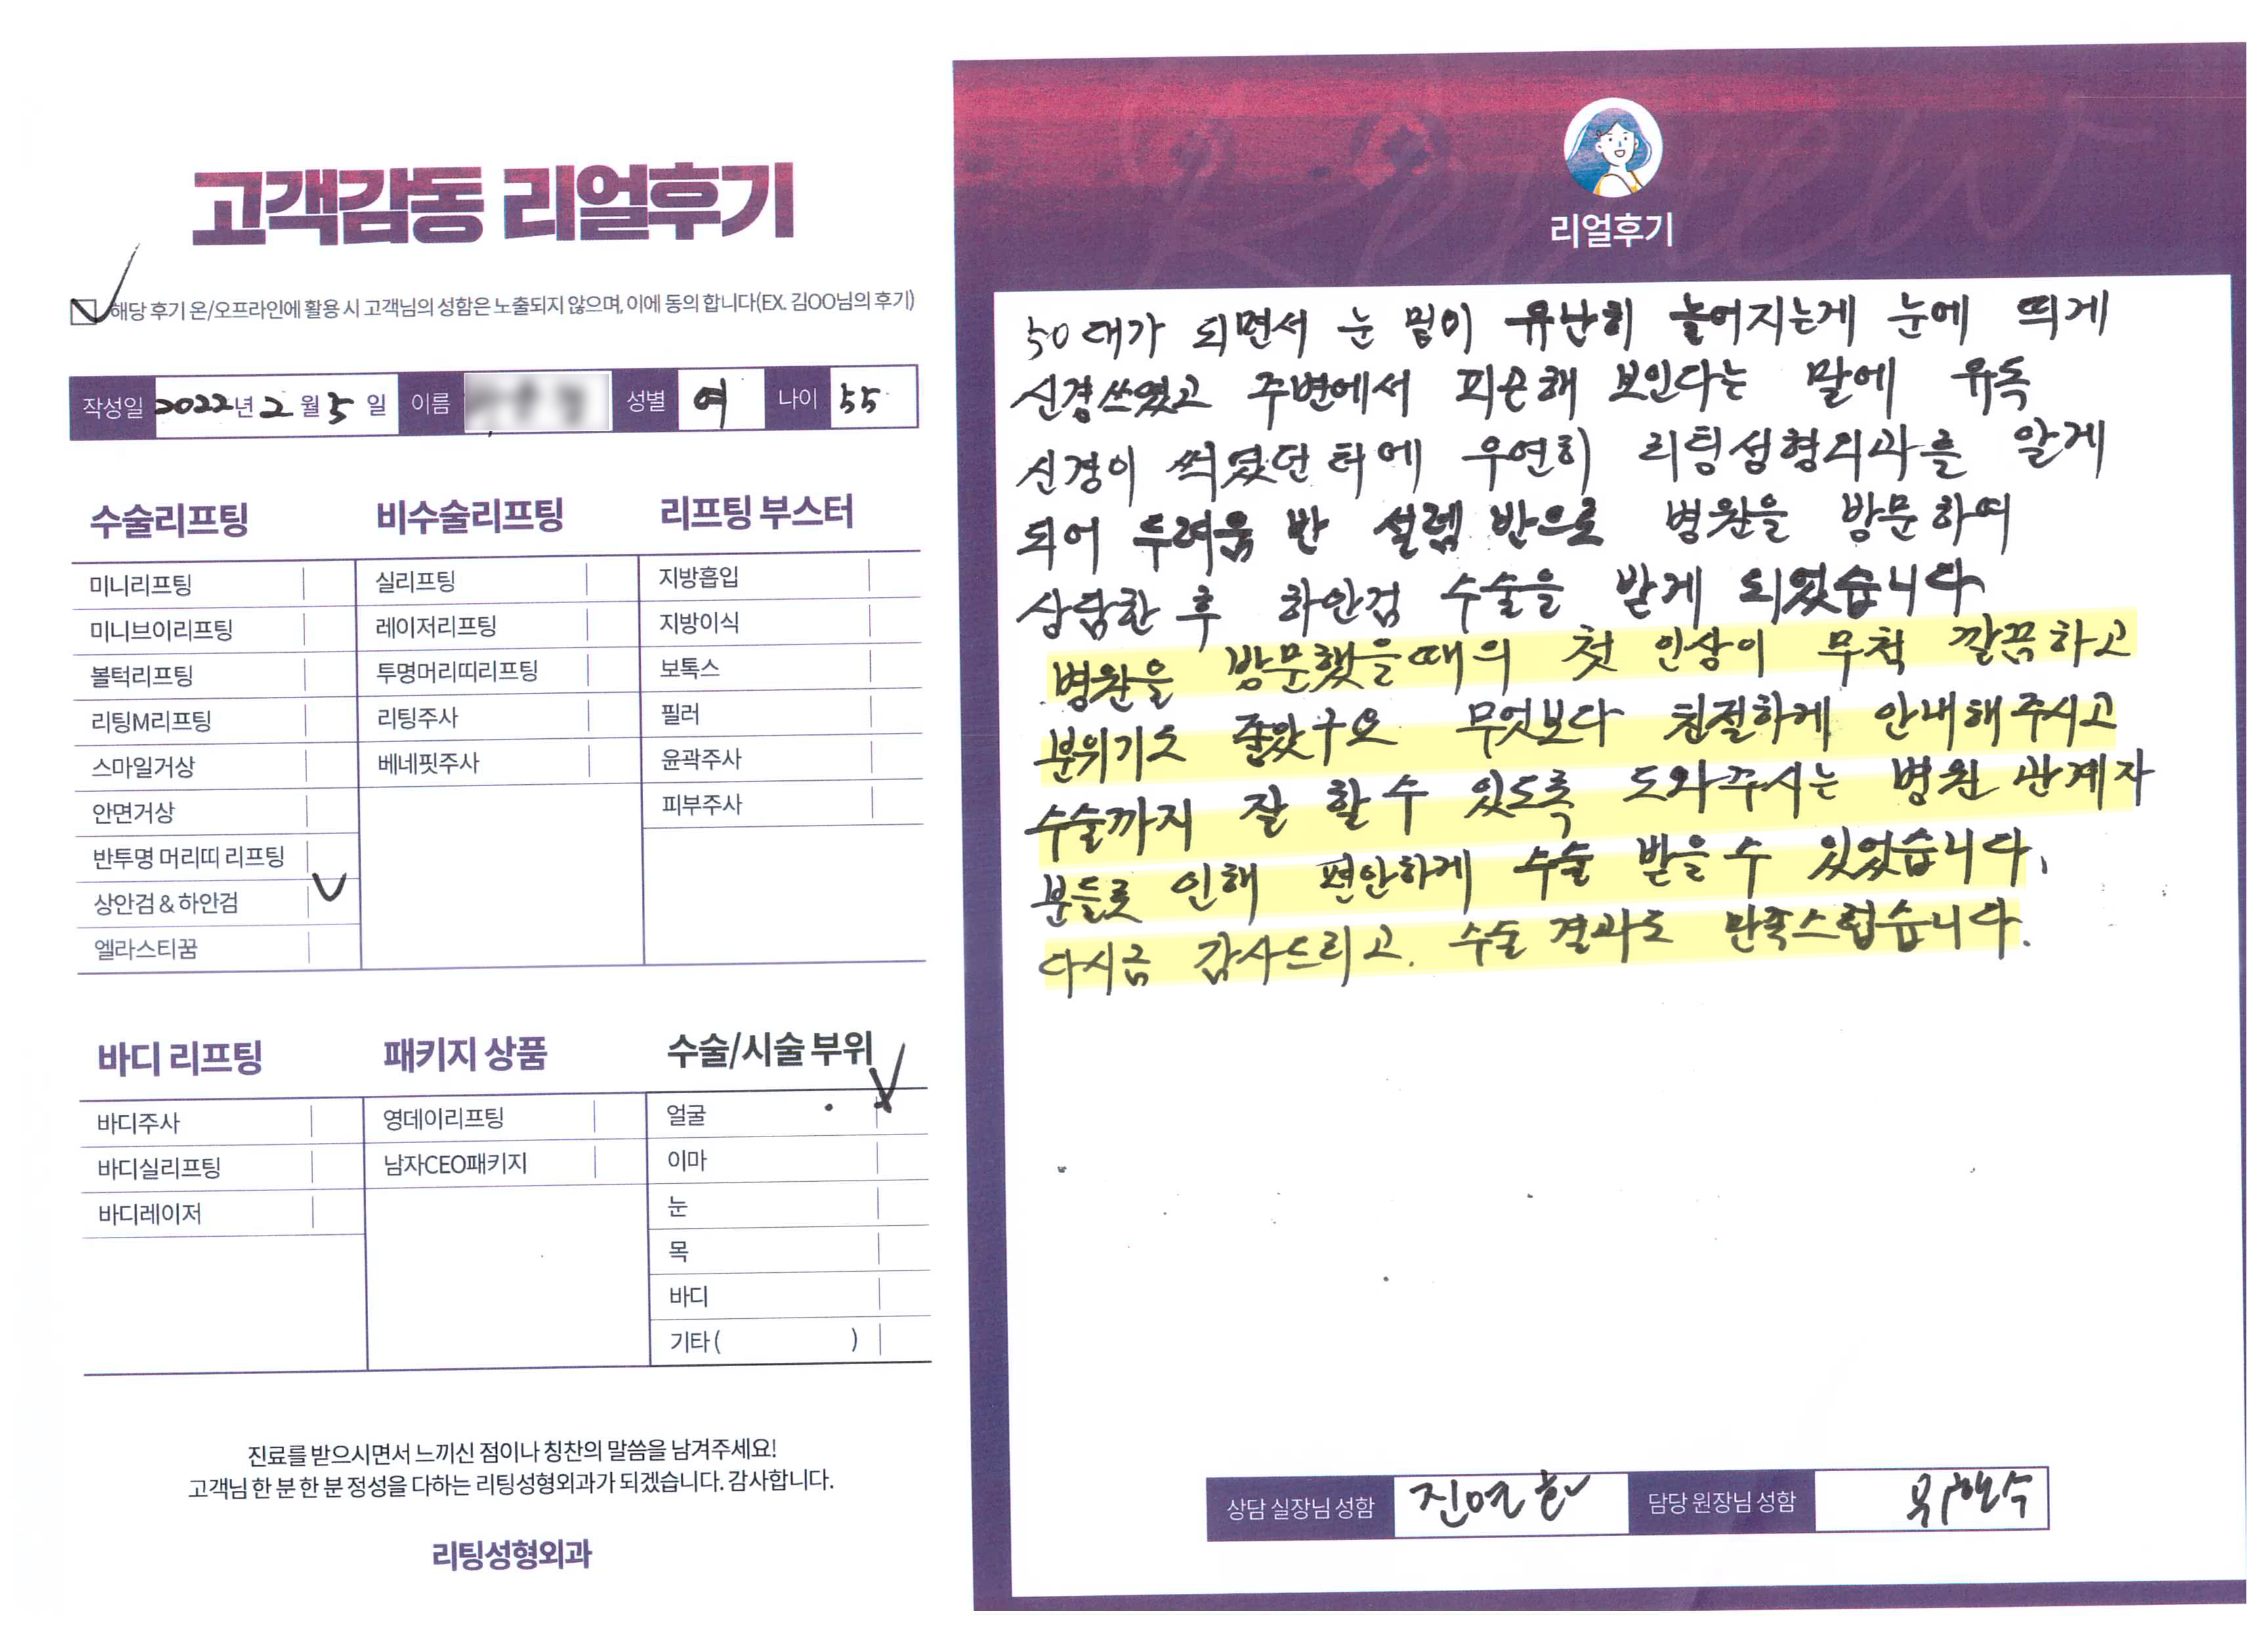 고객감동 리얼후기
해당 후기 온/오프라인에 활용 시 고객님의 성함은 노출되지 않으며, 이에 동의 합니다(EX. 김OO님의 후기)
작성일 2022년 2월 5일 이름 성별 여 나이 55
수술리프팅
미니리프팅
미니브이리프팅
볼턱리프팅
리팅M리프팅
스마일거상
안면거상
반투명 머리띠 리프팅
상안검 & 하안검
엘라스티꿈
비수술리프팅
실리프팅
레이저리프팅
투명머리띠리프팅
리팅주사
베네핏주사
리프팅 부스터
지방흡입
지방이식
보톡스
필러
윤곽주사
피부주사
바디 리프팅
바디주사
바디실리프팅
바디레이저
패키지 상품
영데이리프팅
남자CEO패키지
수술/시술 부위
얼굴
이마
눈
목
바디
기타 ( )
진료를 받으시면서 느끼신 점이나 칭찬의 말씀을 남겨주세요!
고객님 한 분 한 분 정성을 다하는 리팅성형외과가 되겠습니다. 감사합니다.
리팅성형외과
Review
리얼후기
50대가 되면서 눈 밑이 유난히 늘어지는게 눈에 띄게
신경쓰였고 주변에서 피곤해 보인다는 말에 유독
신경이 쓰였던 터에 우연히 리팅성형외과를 알게
되어 두려움 반 설렘 반으로 병원을 방문하여
상담한 후 하안검 수술을 받게 되었습니다
병원을 방문했을때의 첫 인상이 무척 깔끔하고
분위기도 좋았구요 무엇보다 친절하게 안내해주시고
수술까지 잘 할 수 있도록 도와주시는 병원 관계자
분들로 인해 편안하게 수술 받을 수 있었습니다.
다시금 감사드리고. 수술 결과도 만족스럽습니다.
상담 실장님 성함 담당 원장님 성함